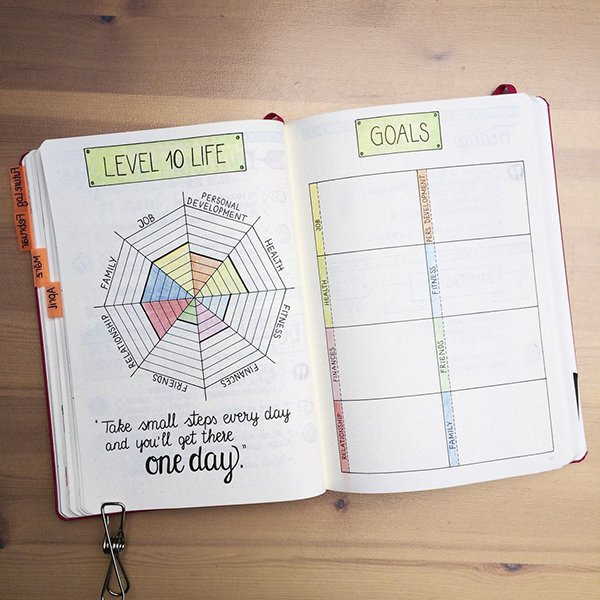 LEVEL 10 LIFE
JOB
PERSONAL
DEVELOPMENT
HEALTH
FITNESS
FINANCES
FRIENDS
RELATIONSHIP
FAMILY
"Take small steps every day
and you'll get there
one day."
Future Log
Februar
März
April
GOALS
JOB
PERS. DEVELOPMENT
HEALTH
FITNESS
FINANCES
FRIENDS
RELATIONSHIP
FAMILY